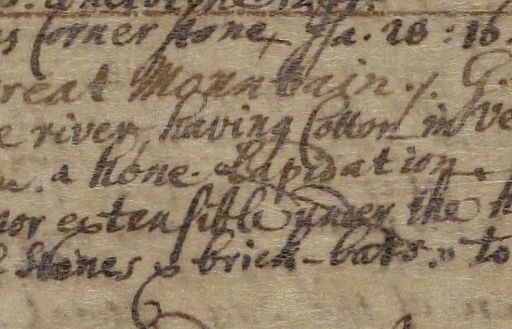 Corner stone, Isa. 28: 16
reat Mountain.
river, having Cotton in
a stone. Lapidation.
nor extensible under the
Stones & brick-bats. to